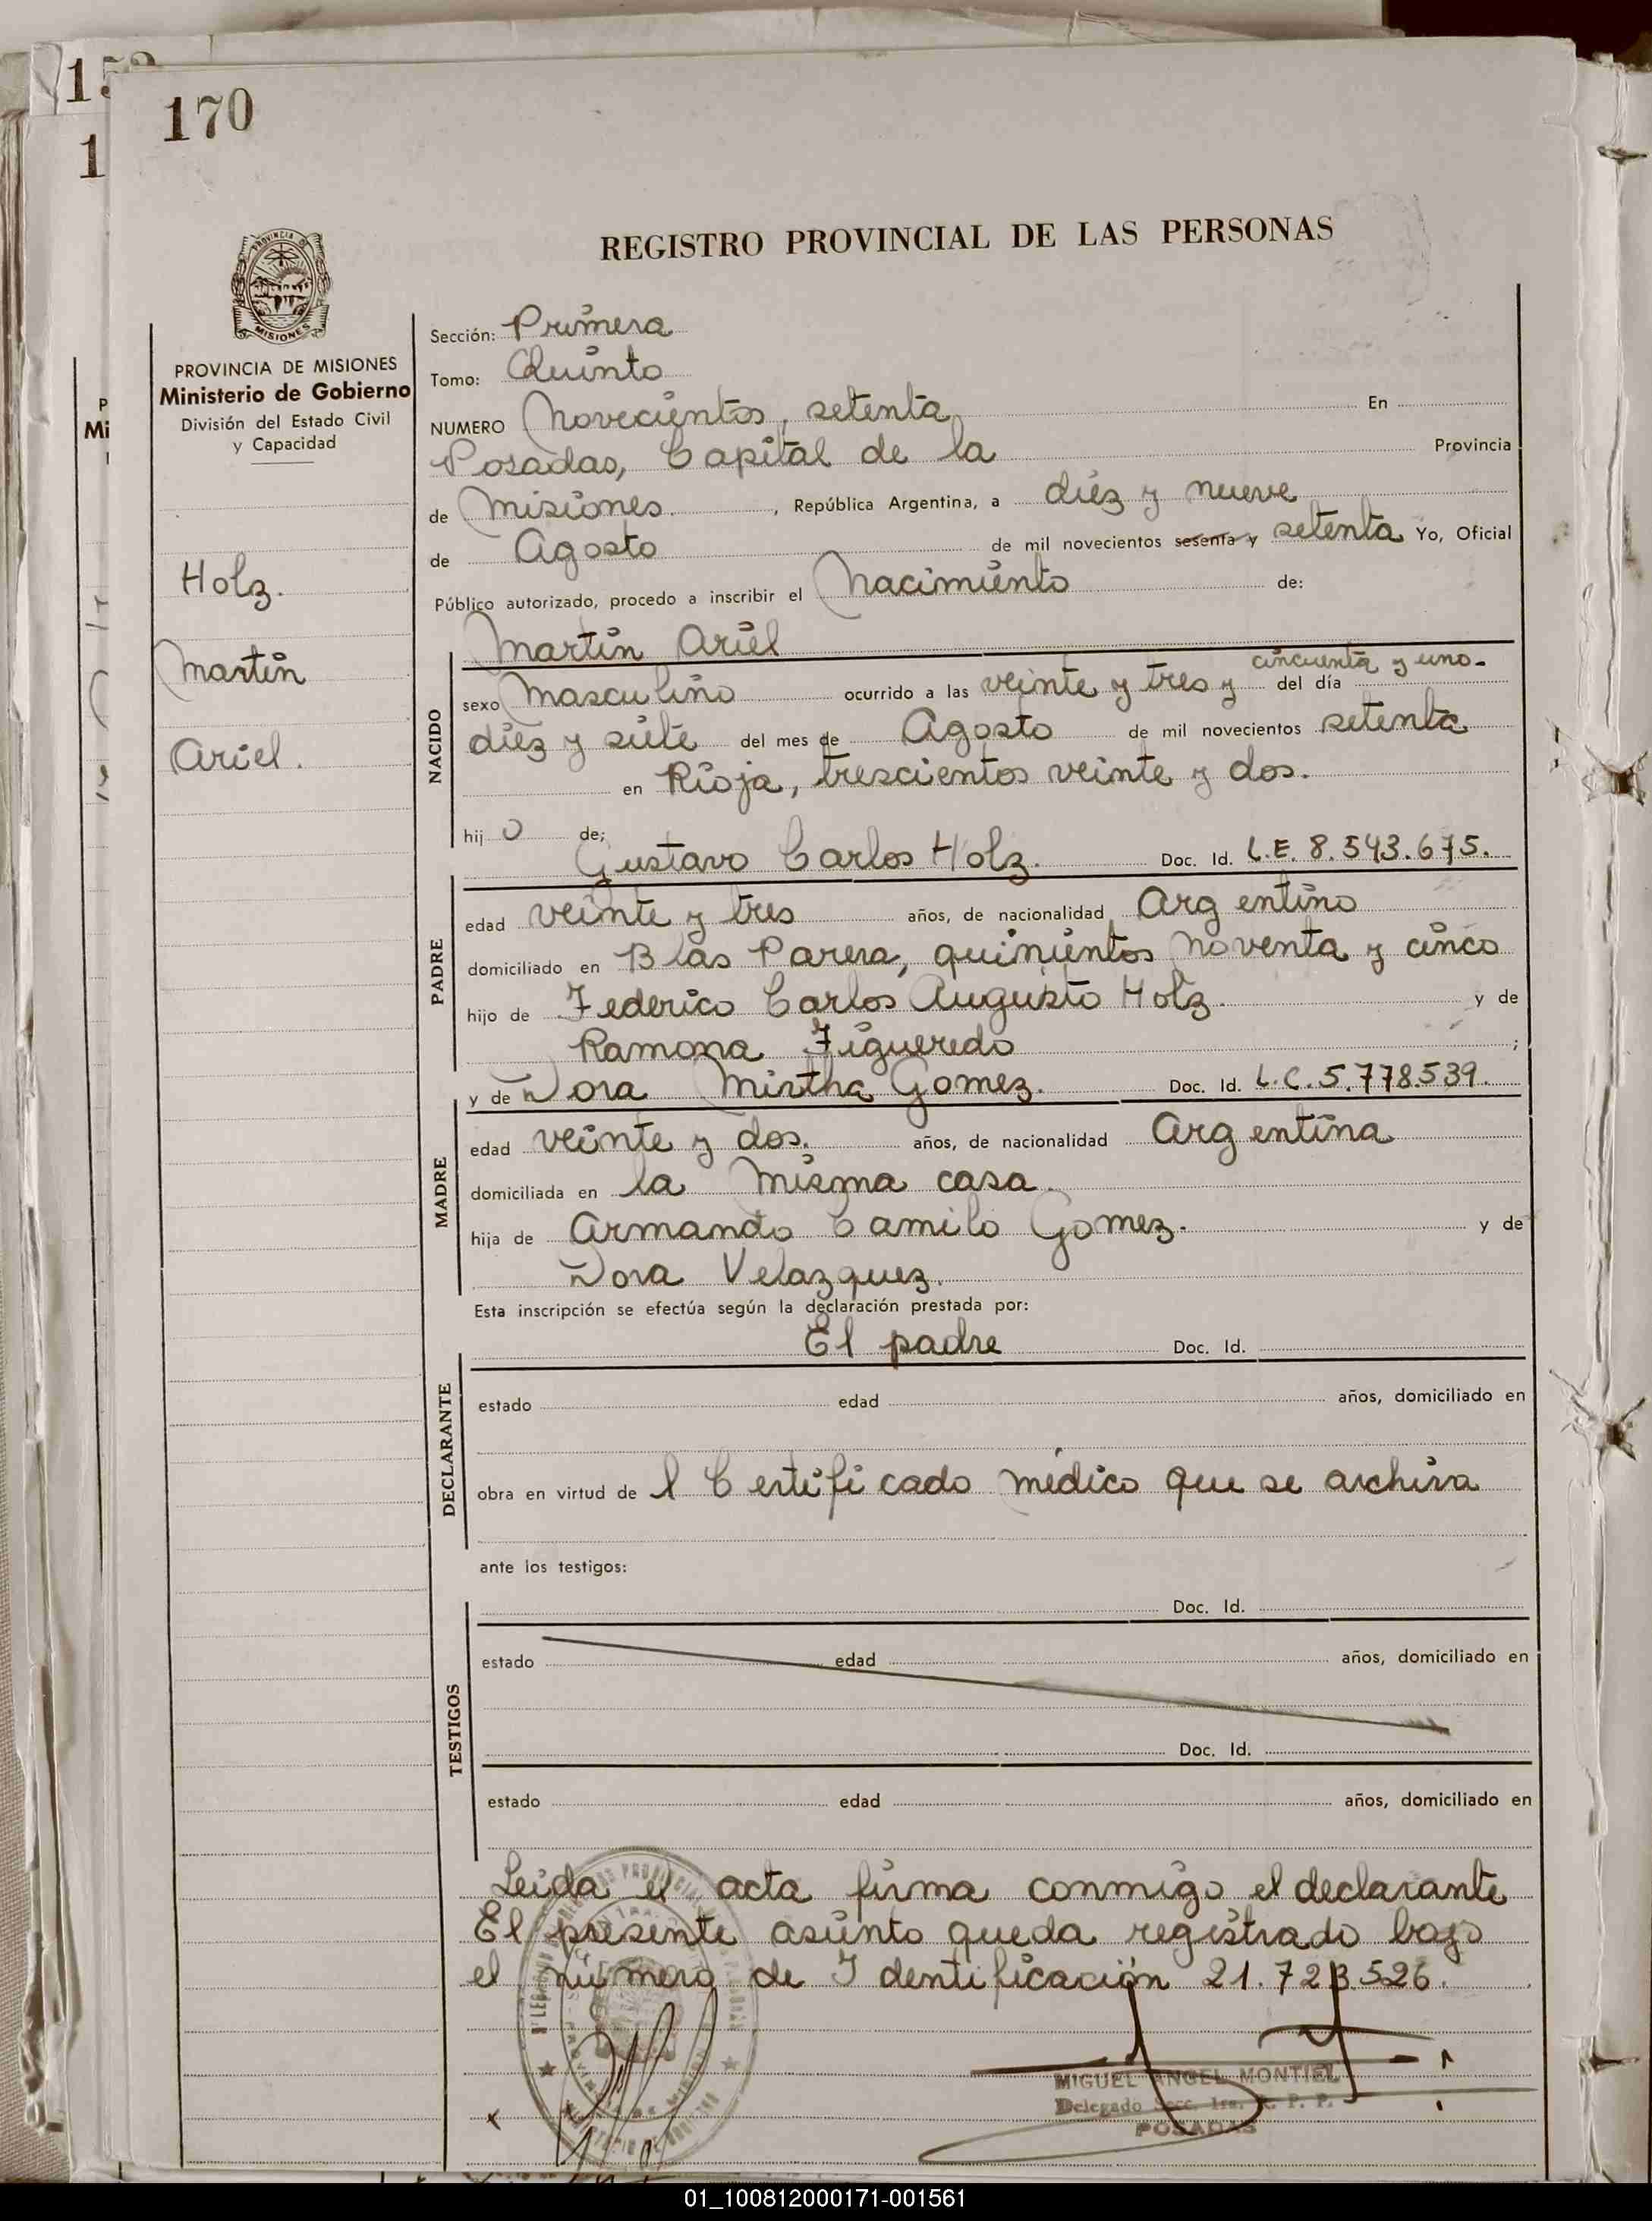 170
REGISTRO PROVINCIAL DE LAS PERSONAS
PROVINCIA DE MISIONES
Ministerio de Gobierno
División del Estado Civil
y Capacidad
Holz.
Martin
Ariel.
Sección: Primera
Tomo: Quinto
NUMERO Novecientos, setenta En
Posadas, Capital de la Provincia
de Misiones. , República Argentina, a diez y nueve
de Agosto de mil novecientos sesenta y setenta Yo, Oficial
Público autorizado, procedo a inscribir el Nacimiento de:
Martin Ariel
NACIDO
cincuenta y uno-
sexo Masculino ocurrido a las veinte y tres y del día
diez y siete del mes de Agosto de mil novecientos setenta
en Rioja, trescientos veinte y dos.
hijo de;
Gustavo Carlos Holz. Doc. Id. L.E. 8.543.675.
PADRE
edad veinte y tres años, de nacionalidad Argentino
domiciliado en Blas Parera, quinientos noventa y cinco
hijo de Federico Carlos Augusto Holz. y de
Ramona Figueredo ;
y de Dora Mirtha Gomez. Doc. Id. L.C. 5.778.539.
MADRE
edad veinte y dos. años, de nacionalidad Argentina
domiciliada en la misma casa.
hija de Armando Camilo Gomez. y de
Dora Velazquez.
Esta inscripción se efectúa según la declaración prestada por:
El padre Doc. Id.
DECLARANTE
estado edad años, domiciliado en
obra en virtud de l Certificado médico que se archiva
ante los testigos:
Doc. Id.
TESTIGOS
estado edad años, domiciliado en
Doc. Id.
estado edad años, domiciliado en
Leida el acta firma conmigo el declarante
El presente asiento queda registrado bajo
el número de Identificación 21.723.526.
MIGUEL ANGEL MONTIEL
Delegado Secc. 1ra. R. P. P.
POSADAS
01_100812000171-001561